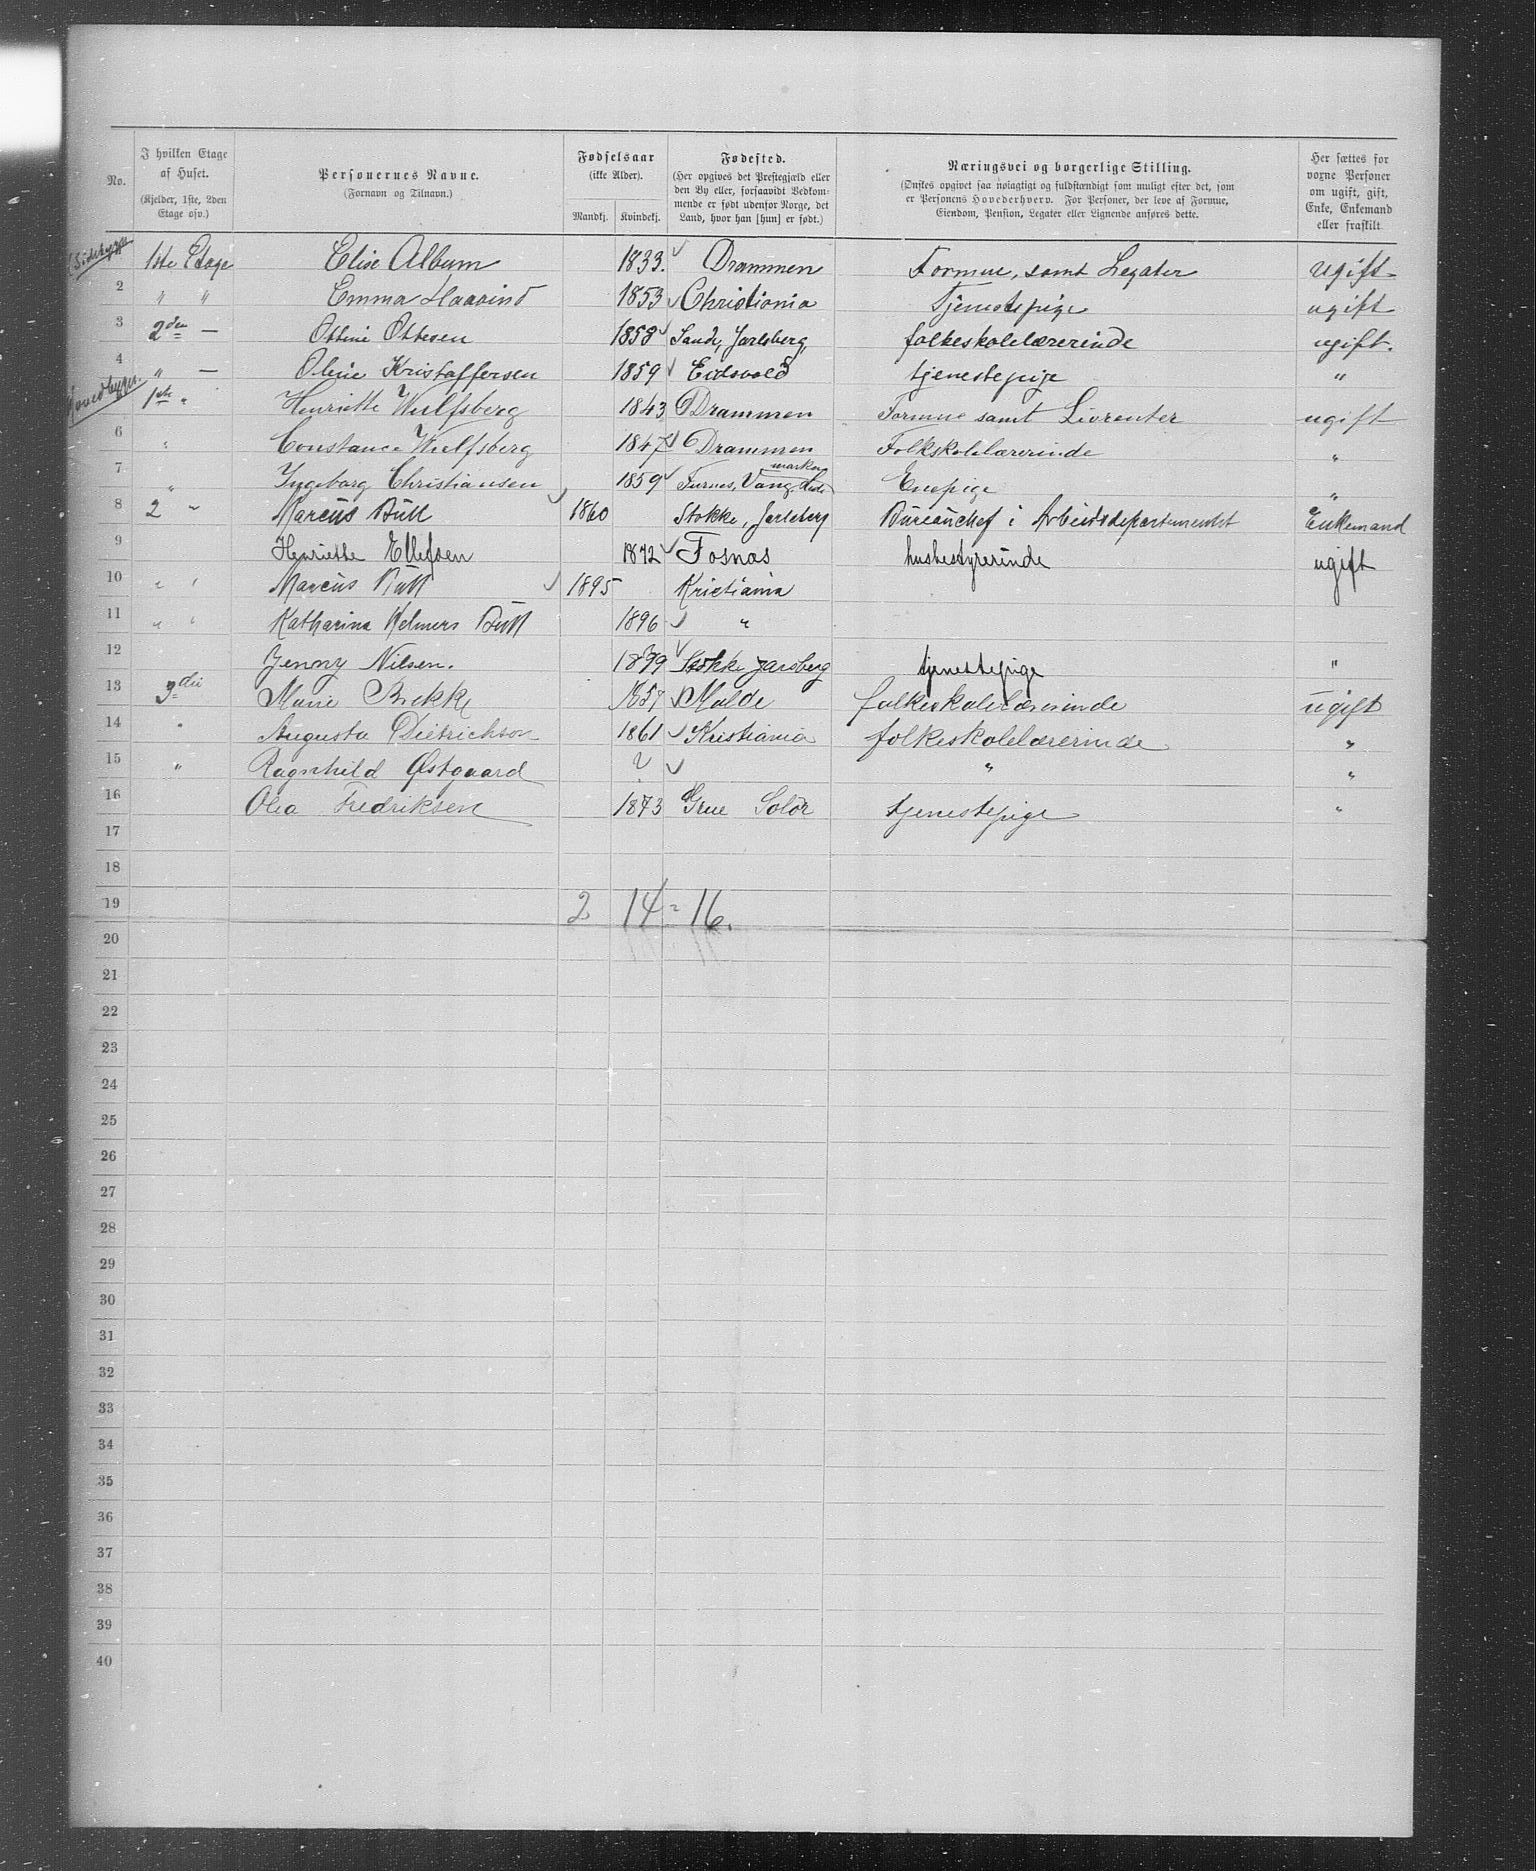 No.
I hvilken Etage af Huset.
(Kjelder, 1ste, 2den Etage osv.)
Personernes Navne.
(Fornavn og Tilnavn.)
Fødselsaar
(ikke Alder).
Mandkj. Kvindekj.
Fødested.
(Her opgives det Prestegjæld eller
den By eller, forsaavidt Vedkom-
mende er født udenfor Norge, det
Land, hvor han [hun] er født.)
Næringsvei og borgerlige Stilling.
(Ønskes opgivet saa nøiagtigt og fuldstændigt som muligt efter det, som
er Personens Hovederhverv. For Personer, der leve af Formue,
Eiendom, Pension, Legater eller Lignende anføres dette.
Her sættes for
vorne Personer
om ugift, gift,
Enke, Enkemand
eller fraskilt
Sidebygg.
1ste Etage Elise Album 1833. Drammen Formue, samt Legater ugift
2 " " Emma Haavind 1853 Christiania Tjenestepige ugift
3 2den — Ottine Ottesen 1858 Sande, Jarlsberg, folkeskolelærerinde ugift.
4 " — Oline Kristoffersen 1859 Eidsvold tjenestepige "
Hovedbygn.
1ste " Henriette Wulfsberg 1843 Drammen Formue samt Livrenter ugift
6 " Constance Wulfsberg 1847 Drammen Folkskolelærerinde "
7 " Ingeborg Christiansen 1859 Furnes, Vang, Hede
marken
Enepige "
8 2 " Marcus Bull 1860 Stokke, Jarlsberg Bureauchef i Arbeidsdepartementet Enkemand
9 Henriette Ellefsen 1872 Fosnas husbestyrerinde ugift
10 " " Marcus Bull 1895 Kristiania
11 " " Katharina Welmers Bull 1896 "
12 Jenny Nilsen. 1879 Stokke Jarsberg tjenestepige "
13 3die Marie Brekke 1857 Molde folkeskolelærerinde ugift
14 " Augusta Dietrichson 1861 Kristiania folkeskolelærerinde "
15 " Ragnhild Østgaard ? " "
16 Olea Fredriksen 1873 Grue Solør tjenestepige "
17
18
19 2 14 = 16.
20
21
22
23
24
25
26
27
28
29
30
31
32
33
34
35
36
37
38
39
40